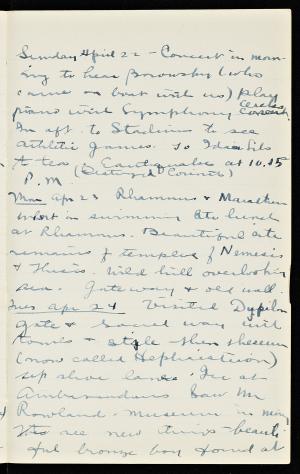 Sunday April 22 - Concert in morn-
ing to hear Borowsky (who
came on boat with us) play
piano with Symphony
In aft. to Stadium to see
athletic games. To Ida's
to tea. Earthquake at 10.15
P.M. (Destroyed Corinth)
Mon Apr 23 Rhamnus & Marathon
in swimming Ate lunch
at Rhamnus. Beautiful site
remains of temples of Nemesis
& Themis. Wild hill overlooking
sea. Gateway & old wall.
Tues Apr 24 Visited Dypilon
gate & Sacred way with
tombs & then theseum
(now called Hephaisteion)
at
Ambassadors Saw Mr
Rowland - museum in morn
to see new things - beauti-
ful bronze boy found at